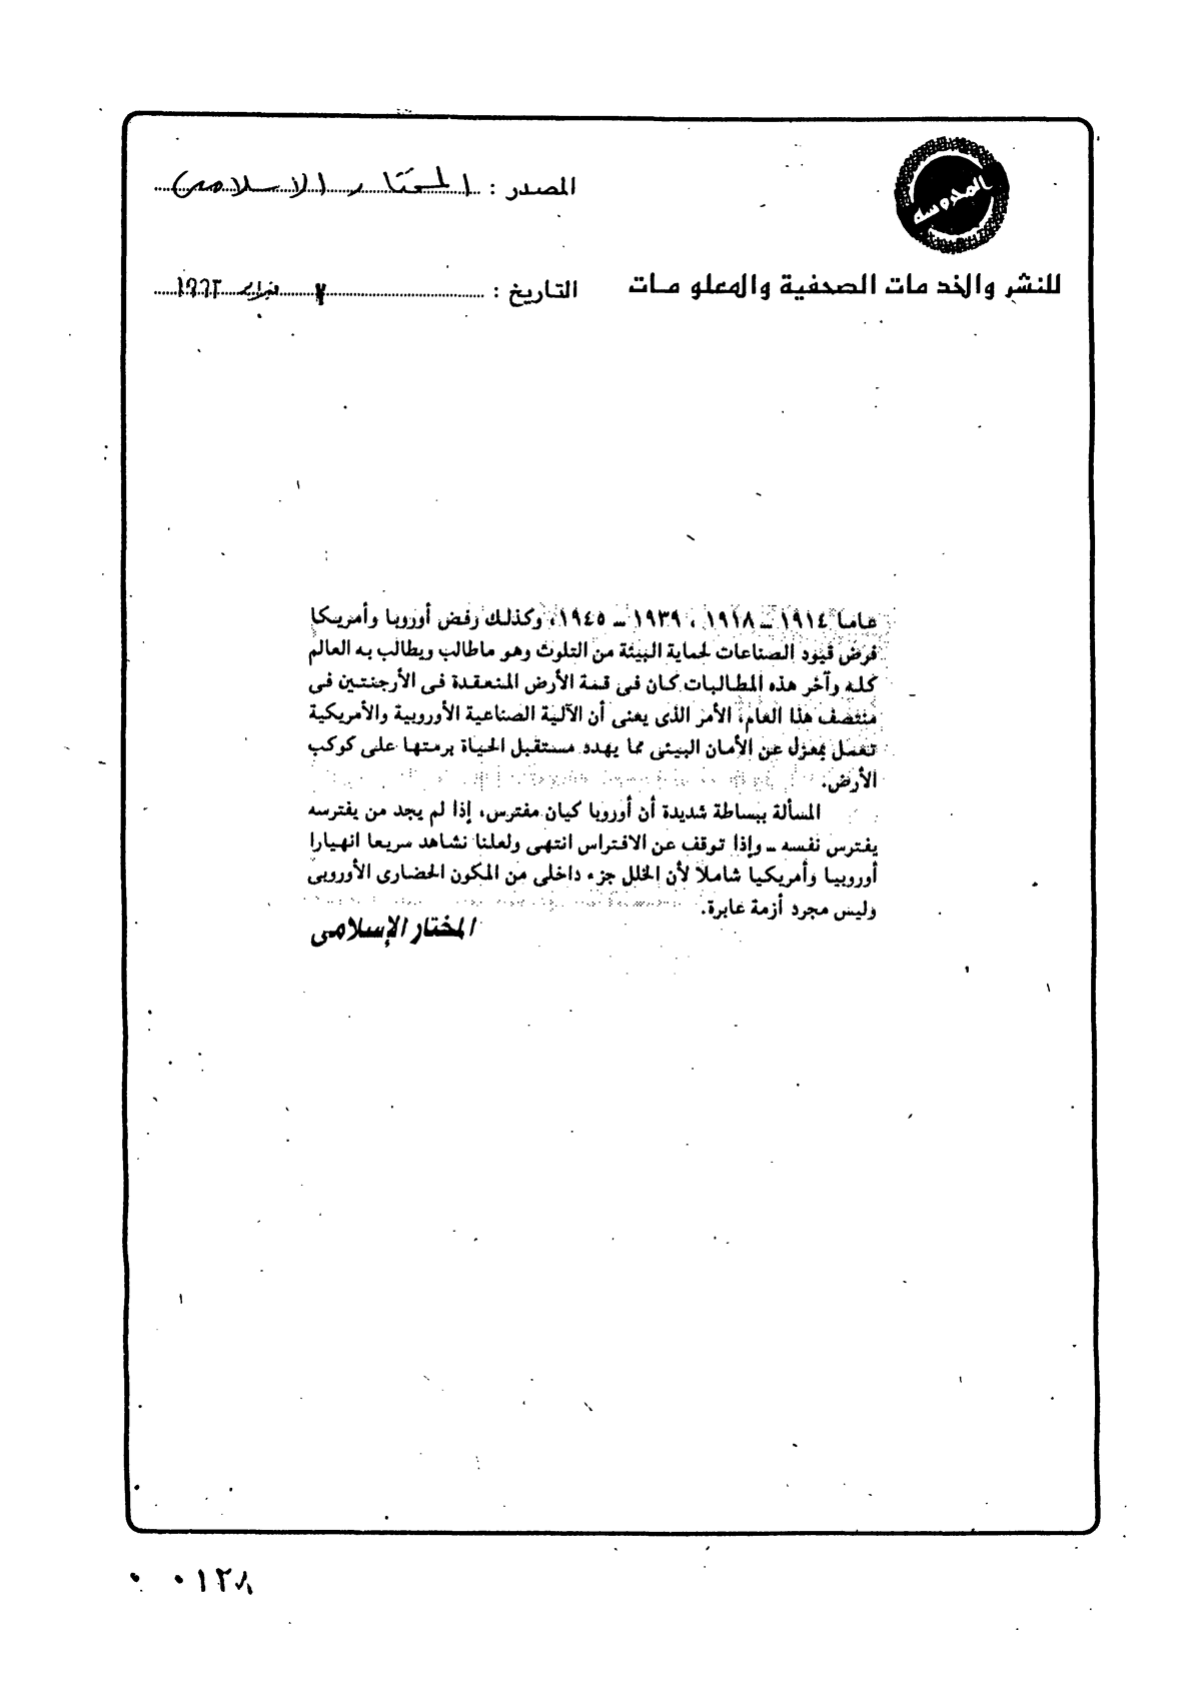 المحروسه
المصدر : المختار الاسلامى
للنشر والخدمات الصحفية والمعلومات
التاريخ : ٧ فبراير ١٩٩٣
عاما ١٩١٤ ــ ١٩١٨ ، ١٩٣٩ ــ ١٩٤٥، وكذلك رفض أوروبا وأمريكا
فرض قيود الصناعات لحماية البيئة من التلوث وهو ماطالب ويطالب به العالم
كله وآخر هذه المطالبات كان فى قمة الأرض المنعقدة فى الأرجنتين فى
منتصف هذا العام، الأمر الذى يعنى أن الآلية الصناعية الأوروبية والأمريكية
تعمل بمعزل عن الأمان البيئى مما يهدد مستقبل الحياة برمتها على كوكب
الأرض.
المسألة ببساطة شديدة أن أوروبا كيان مفترس، إذا لم يجد من يفترسه
يفترس نفسه ــ وإذا توقف عن الافتراس انتهى ولعلنا نشاهد سريعا انهيارا
أوروبيا وأمريكيا شاملا لأن الخلل جزء داخلى من المكون الحضارى الأوروبى
وليس مجرد أزمة عابرة.
المختار الإسلامى
٠ ٠١٢٨